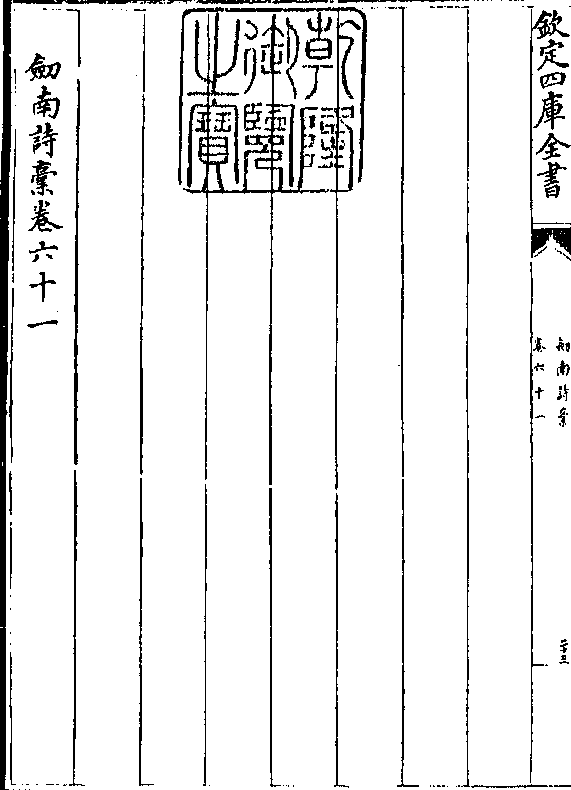 欽定四庫全書
劒南詩稾
卷六十一
二十三
乾隆
御覽
之寶
劒南詩稾卷六十一